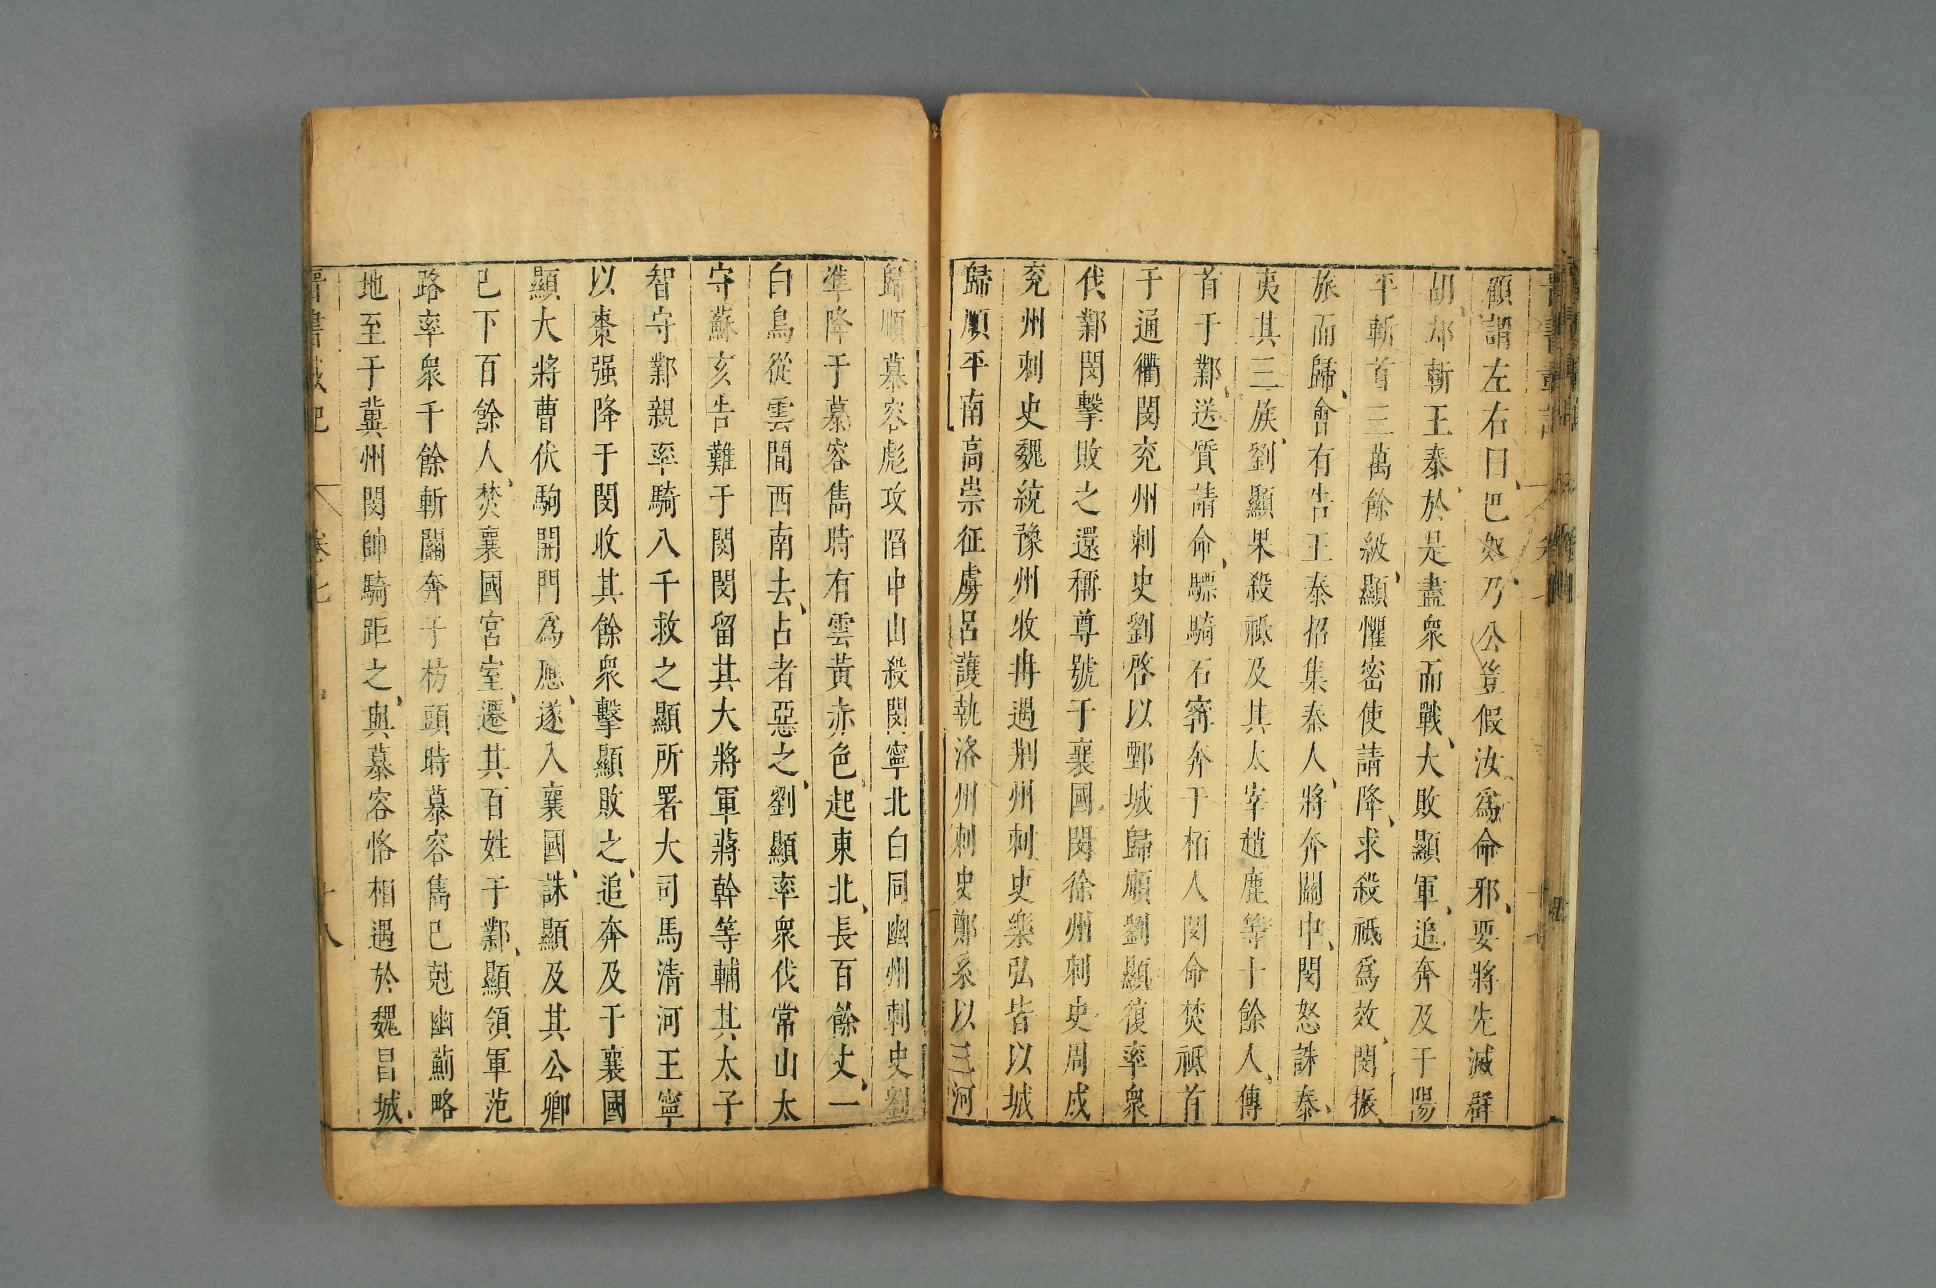 顧謂左右曰巴奴乃公豈假汝爲命邪要將先滅群
胡却斬王泰於是盡衆而戰大敗顯軍追奔及于陽
平斬首三萬餘級顯懼密使請降求殺祗爲效閔振
旅而歸會有告王泰招集秦人將奔關中閔怒誅泰
夷其三族劉顯果殺祗及其太宰趙鹿等十餘人傳
首于鄴送質請命驃騎石寧奔于栢人閔命焚祗首
于通衢閔兖州刺史劉啓以鄄城歸順劉顯復率衆
伐鄴閔擊敗之還稱尊號于襄國閔徐州刺史周成
兖州刺史魏統豫州牧冉遇荆州刺史樂弘皆以城
歸順平南高崇征虜呂護執洛州刺史鄭系以三河
歸順慕容彪攻陷中山殺閔寧北白同幽州刺史劉
準降于慕容雋時有雲黃赤色起東北長百餘丈一
白鳥從雲間西南去占者惡之劉顯率衆伐常山太
守蘇亥告難于閔閔留其大將軍蔣幹等輔其太子
智守鄴親率騎八千救之顯所署大司馬清河王寧
以棗强降于閔收其餘衆擊顯敗之追奔及于襄國
顯大將曹伏駒開門爲應遂入襄國誅顯及其公卿
已下百餘人焚襄國宮室遷其百姓于鄴顯領軍范
路率衆千餘斬關奔于枋頭時慕容雋已尅幽薊略
地至于冀州閔帥騎距之與慕容恪相遇於魏昌城
晉書載記 卷七 十八